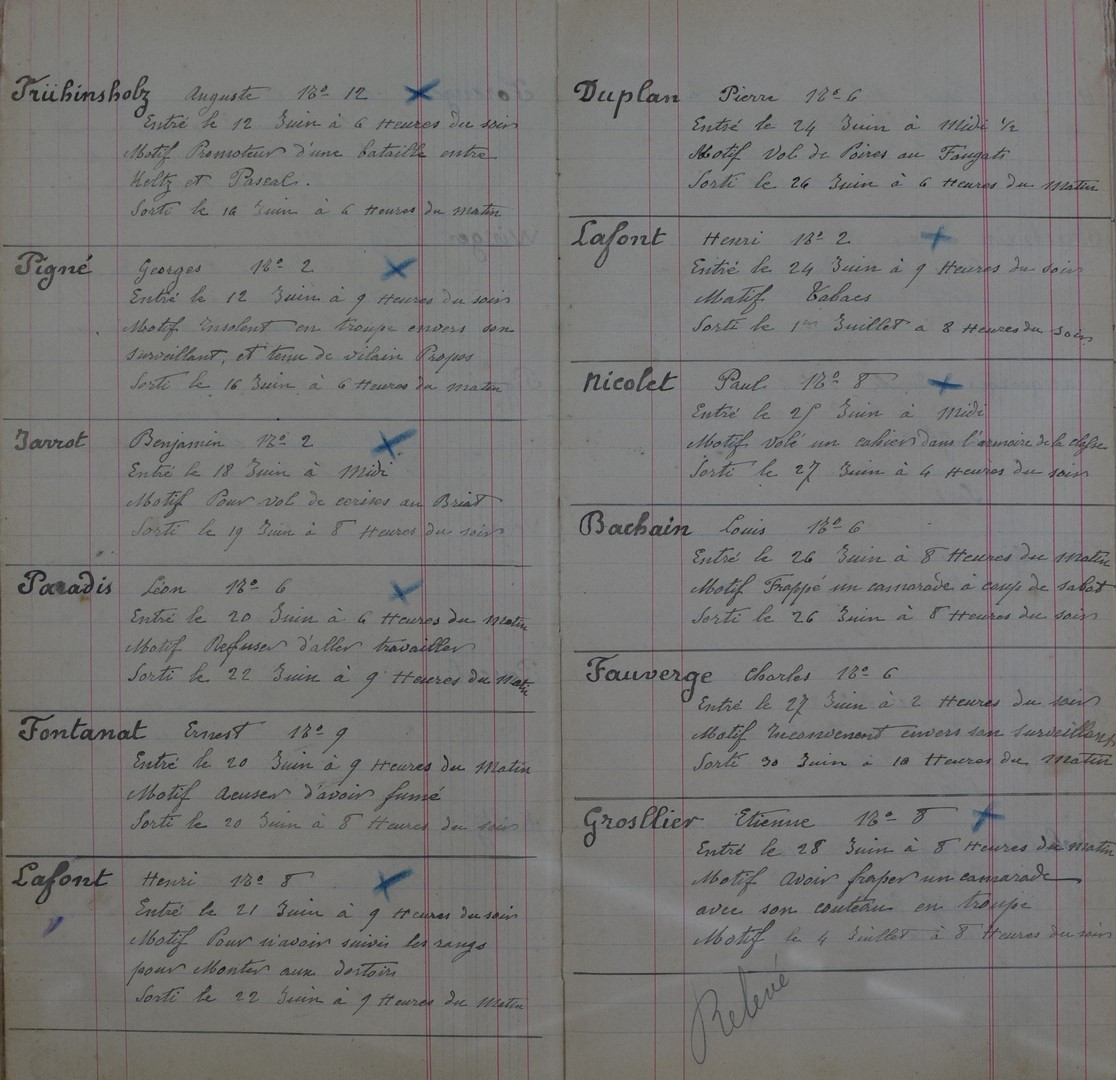 Frühinsholz Auguste No 12
Entré le 12 Juin à 6 Heures du soir
Motif Promoteur d'une bataille entre
Keltz et Pascal.
Sorti le 16 Juin à 6 Heures du matin
Pigné Georges No 2
Entré le 12 Juin à 9 Heures du soir
Motif Insolent en troupe envers son
surveillant, et tenu de vilain Propos
Sorti le 16 Juin à 6 Heures du matin
Jarrot Benjamin No 2
Entré le 18 Juin à Midi
Motif Pour vol de cerises au Briat
Sorti le 19 Juin à 8 Heures du soir
Paradis Léon No 6
Entré le 20 Juin à 6 Heures du Matin
Motif Refuser d'aller travailler
Sorti le 22 Juin à 9 Heures du Matin
Fontanat Ernest No 9
Entré le 20 Juin à 9 Heures du Matin
Motif Acuser d'avoir fumé
Sorti le 20 Juin à 8 Heures du soir
Lafont Henri No 8
Entré le 21 Juin à 9 Heures du soir
Motif Pour n'avoir suivis les rangs
pour Monter aux dortoirs
Sorti le 22 Juin à 9 Heures du Matin
Duplan Pierre No 6
Entré le 24 Juin à Midi 1/2
Motif Vol de Poires au Fougats
Sorti le 26 Juin à 6 Heures du Matin
Lafont Henri No 2
Entré le 24 Juin à 9 Heures du soir
Motif Tabacs
Sorti le 1er Juillet a 8 Heures du Soir
Nicolet Paul No 8
Entré le 25 Juin à Midi
Motif Volé un cahier dans l'armoire de la classe
Sorti le 27 Juin à 4 Heures du soir
Bachain Louis No 6
Entré le 26 Juin à 8 Heures du Matin
Motif Frappé un camarade à coup de sabot
Sorti le 26 Juin à 8 Heures du soir
Fauverge Charles No 6
Entré le 27 Juin à 2 Heures du soir
Motif Inconvenent envers son surveillant
Sorti 30 Juin à 10 Heures du Matin
Grosllier Etienne No 8
Entré le 28 Juin à 8 Heures du Matin
Motif Avoir fraper un camarade
avec son couteau en troupe
Motif le 4 Juillet à 8 Heures du soir
Relevé